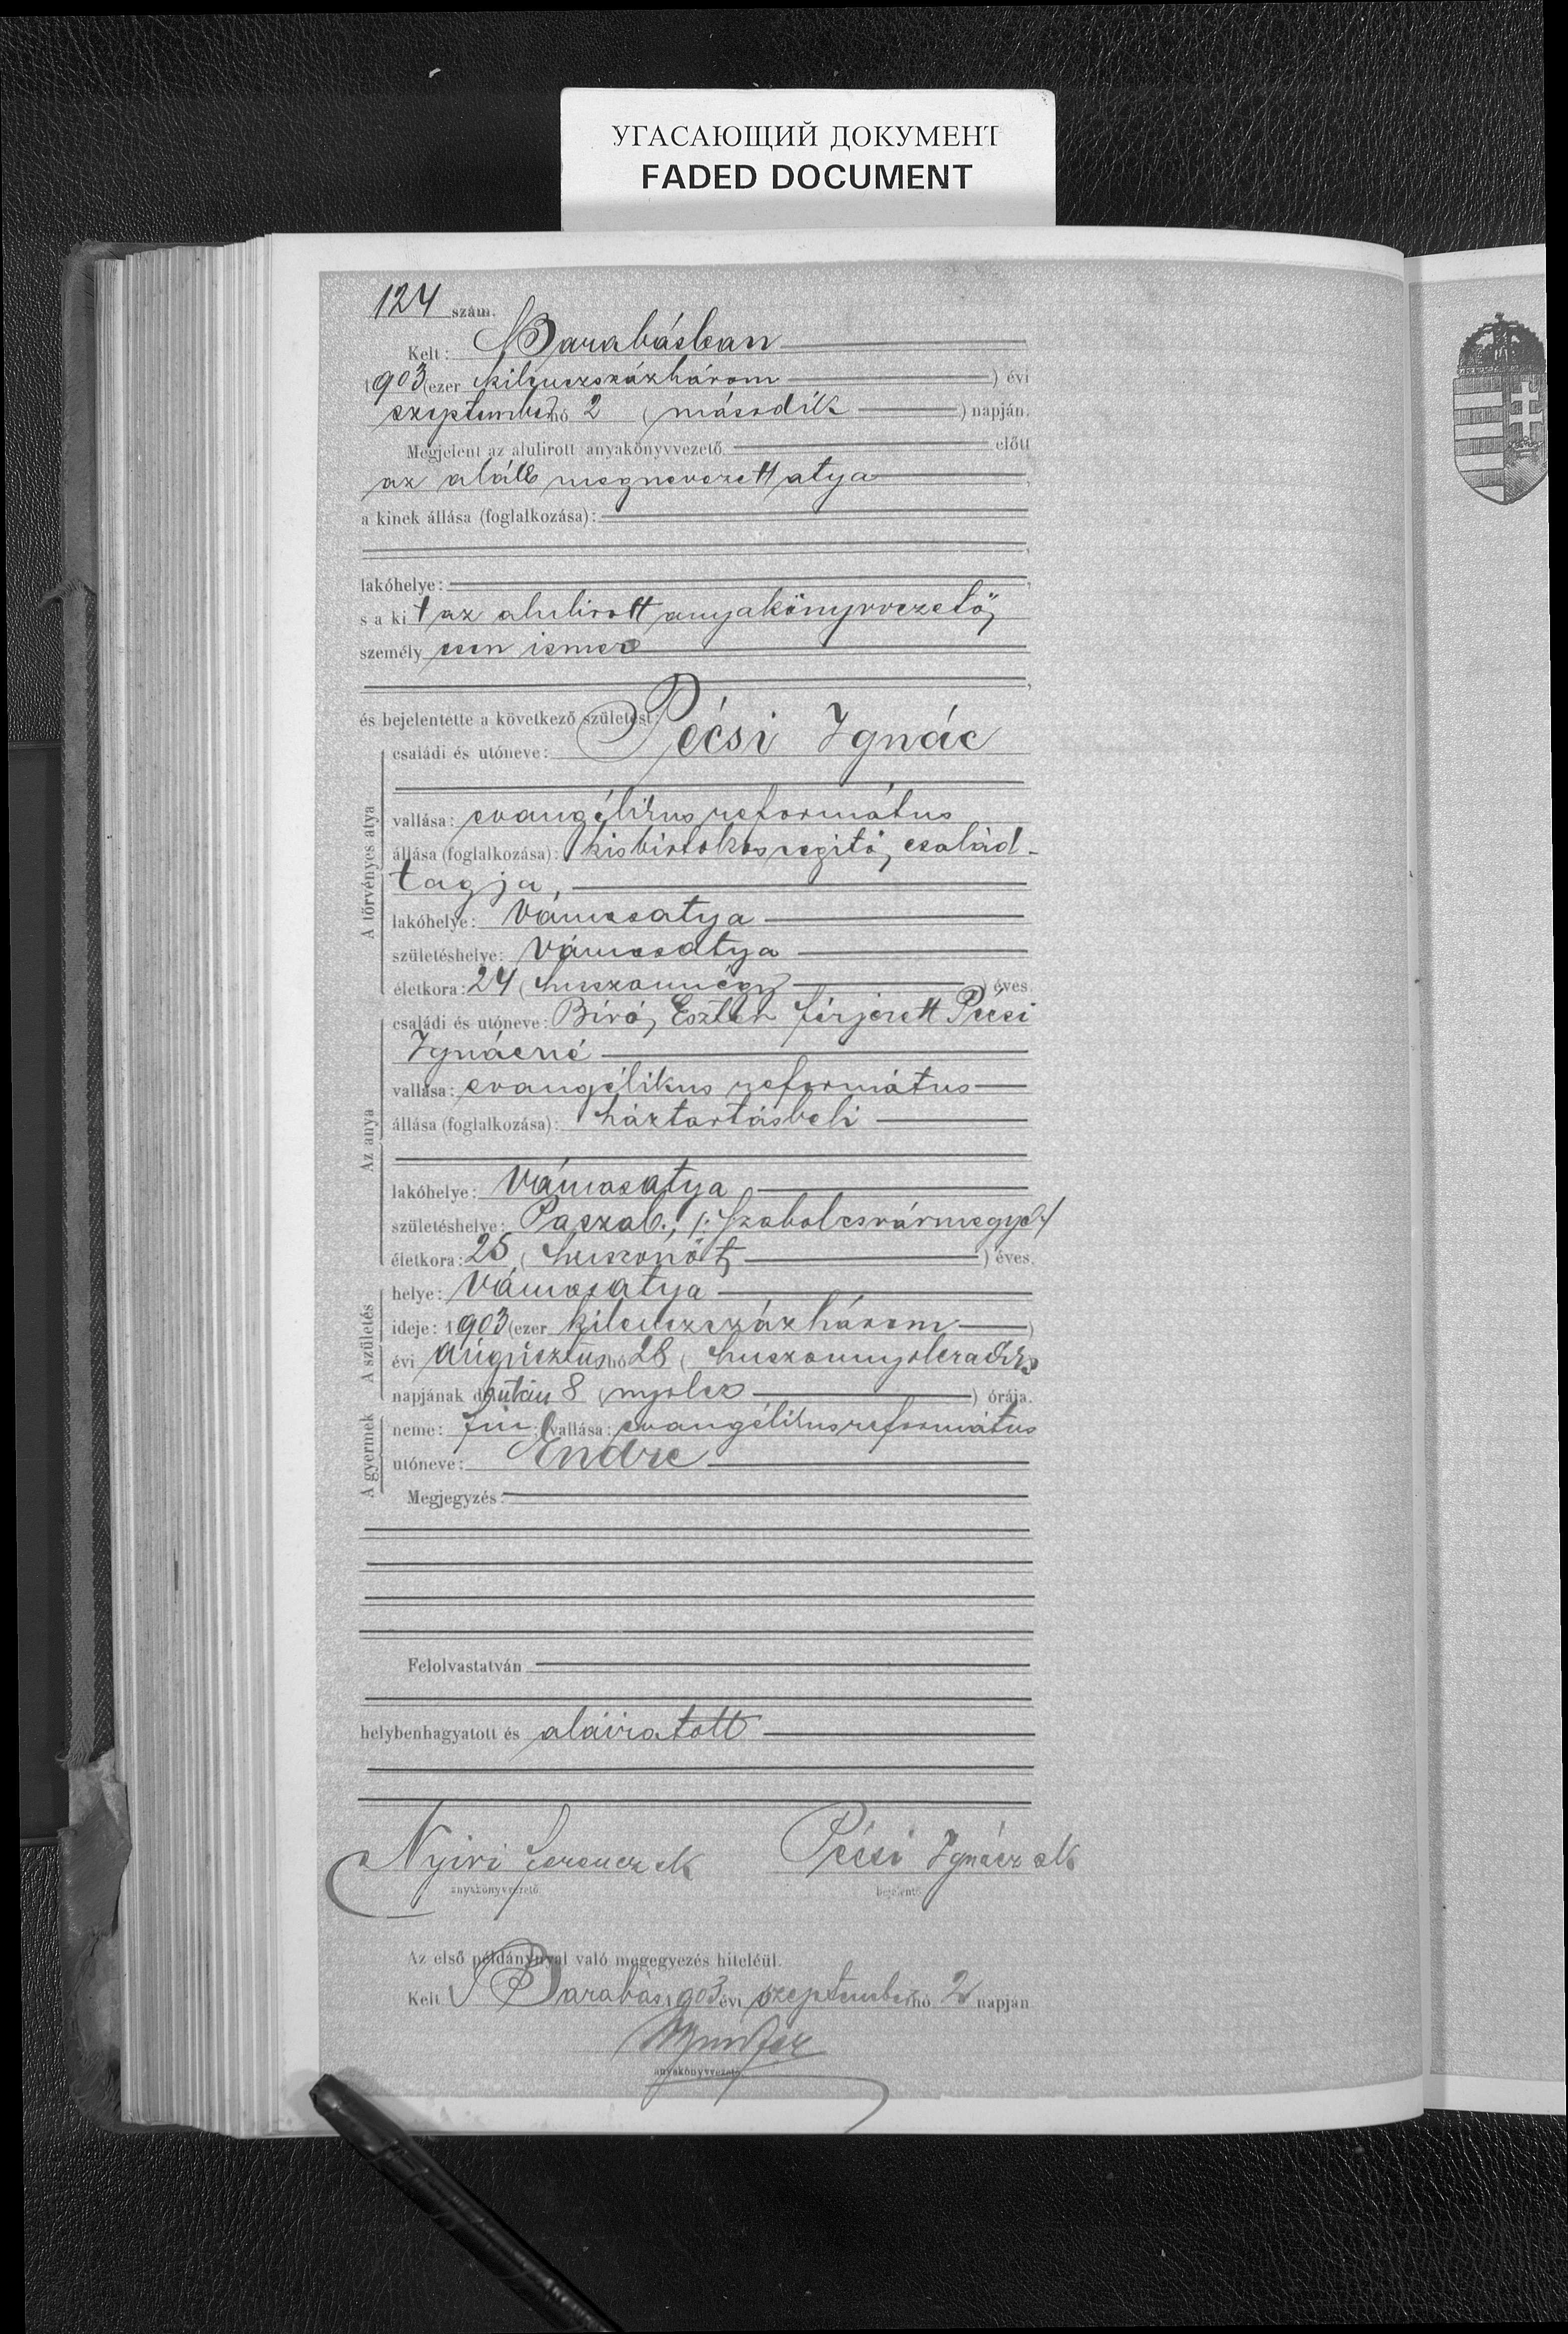 УГАСАЮЩИЙ ДОКУМЕНТ
FADED DOCUMENT
124 szám.
Kelt: Barabásban
1903 (ezer kilenczszázhárom) évi
szeptember hó 2 (második) napján.
Megjelent az alulirott anyakönyvvezető előtt
az alább megnevezett atya,
a kinek állása (foglalkozása):
lakóhelye:
s a kit az alulirott anyakönyvvezető,
személyesen ismer
és bejelentette a következő születést:
A törvényes atya
családi és utóneve: Pécsi Ignác
vallása: evangélikus református
állása (foglalkozása): kisbirtokos segitő, család-
tagja,
lakóhelye: Vámosatya
születéshelye: Vámosatya
életkora: 24 (huszonnégy) éves.
Az anya
családi és utóneve: Biró, Eszter férjezett Pécsi
Ignácné
vallása: evangélikus református
állása (foglalkozása): háztartásbeli
lakóhelye: Vámosatya
születéshelye: Paszab., /: Szabolcsvármegye :/
életkora: 25 (huszonöt,) éves.
A születés
helye: Vámosatya
ideje: 1903 (ezer kilenczszázhárom)
évi augusztus hó 28 (huszonnyolczadik)
napjának délután 8 (nyolcz) órája.
A gyermek
neme: fiu, vallása: evangélikus református
utóneve: Endre
Megjegyzés:
Felolvastatván
helybenhagyatott és aláiratott
Nyiri Ferencz sk Pécsi Ignácz sk
anyakönyvvezető bejelentő
Az első példánynyal való megegyezés hiteléül.
Kelt Barabás, 1903 évi szeptember hó 2 napján
anyakönyvvezető